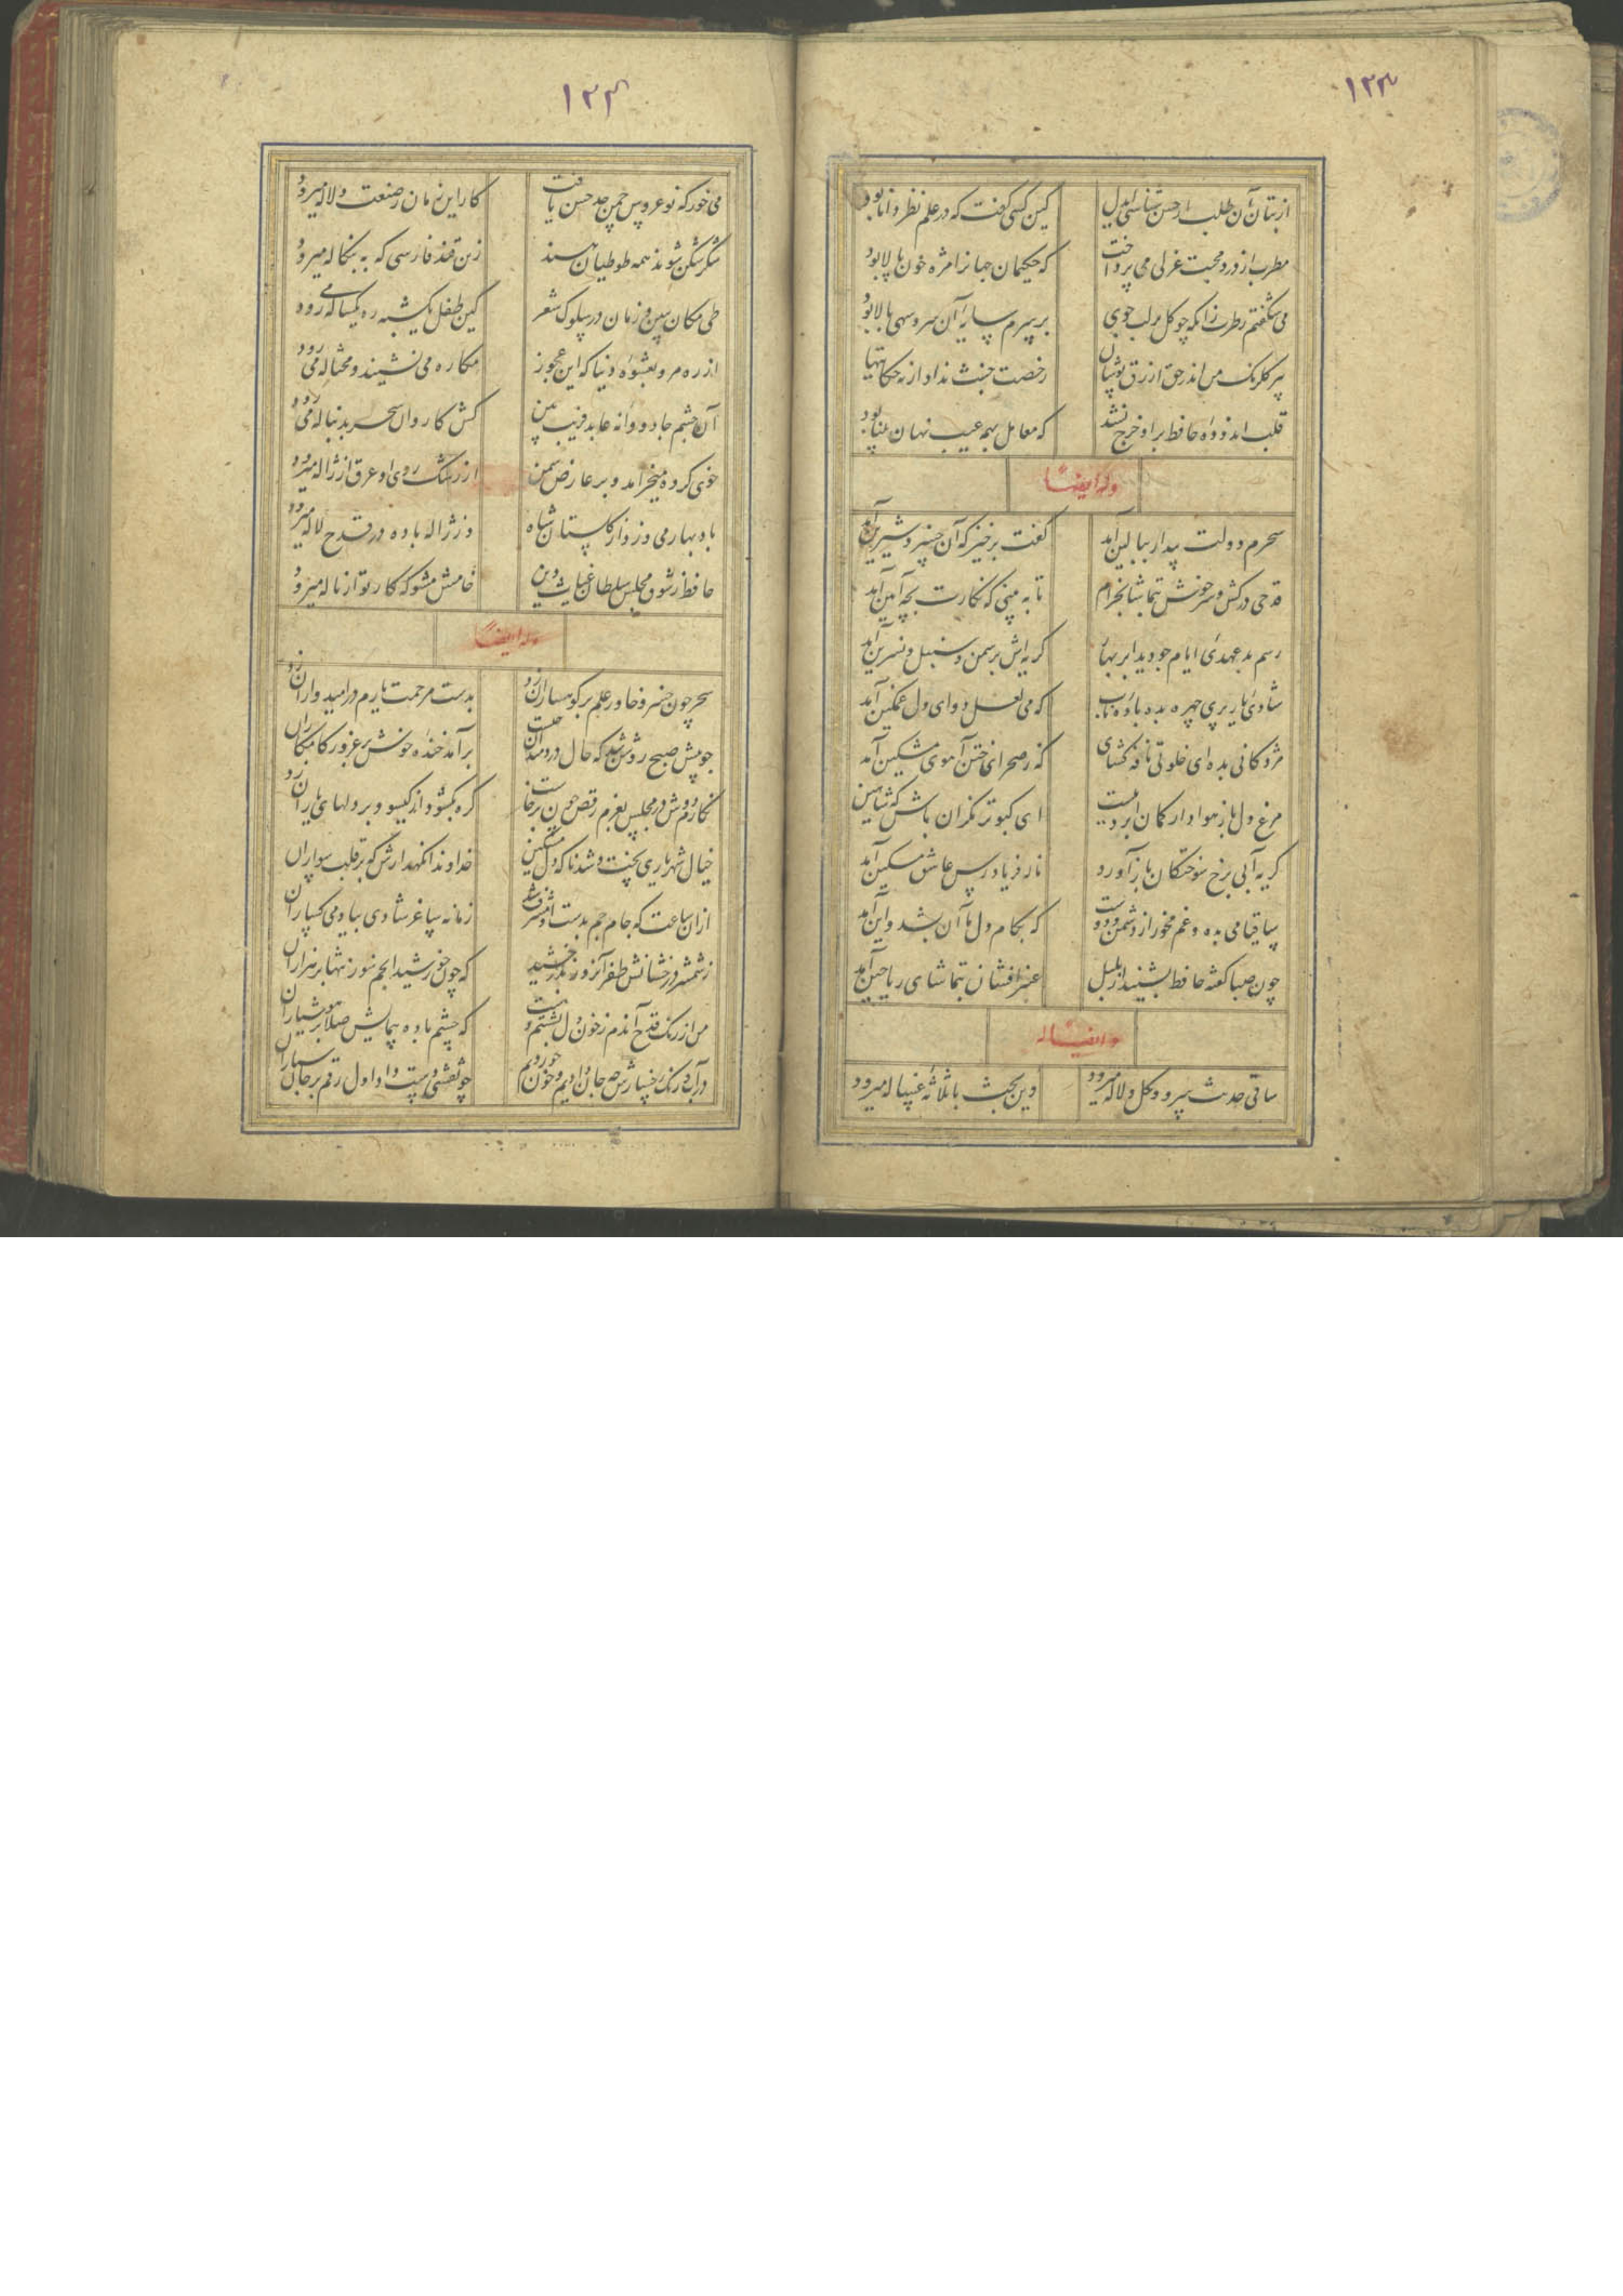 ۱۲۳
از بتان آن طلب ار حسن شناسی ایدل کین کسی گفت که در علم نظر دانا بود
مطرب از درد محبت غزلی می پرداخت که حکیمان جهانرا مژه خون پالا بود
می شکفتم ز طرب زانکه چو گل بر لب جوی بر سرم سایه آن سرو سهی بالا بود
پیر گلرنگ من اندر حق ازرق پوشان رخصت خبث نداد ار نه حکایتها بود
قلب اندوده حافظ بر او خرج نشد که معامل بهمه عیب نهان بینا بود
وله ایضاً
سحرم دولت بیدار ببالین آمد گفت برخیز که آن خسرو شیرین آمد
قدحی درکش و سرخوش بتماشا بخرام تا به بینی که نگارت بچه آیین آمد
رسم بد عهدی ایام چو دید ابر بهار گریه اش بر سمن و سنبل و نسرین آمد
شادی یار پری چهره بده باده ناب که می لعل دوای دل غمگین آمد
مژدگانی بده ای خلوتی نافه گشای که ز صحرای ختن آهوی مشکین آمد
مرغ دل باز هوادار کمان ابروییست ای کبوتر نگران باش که شاهین آمد
گریه آبی برخ سوختگان باز آورد ناله فریادرس عاشق مسکین آمد
ساقیا می بده و غم مخور از دشمن و دوست که بکام دل ما آن بشد و این آمد
چون صبا گفته حافظ بشنید از بلبل عنبرافشان بتماشای ریاحین آمد
و ایضاً له
ساقی حدیث سرو و گل و لاله میرود وین بحث با ثلاثه غساله میرود
۱۲۴
می خور که نوعروس چمن حد حسن یافت کار این زمان ز صنعت دلاله میرود
شکرشکن شوند همه طوطیان هند زین قند فارسی که به بنگاله میرود
طی مکان ببین و زمان در سلوک شعر کین طفل یکشبه ره یکساله می رود
از ره مرو بعشوه دنیا که این عجوز مکاره می نشیند و محتاله می رود
آن چشم جادوانه عابد فریب بین کش کاروان سحر بدنباله می رود
خوی کرده میخرامد و بر عارض سمن از رشک روی او عرق از ژاله میرود
باد بهار می وزد از گلستان شاه وز ژاله باده در قدح لاله میرود
حافظ ز شوق مجلس سلطان غیاث دین خامش مشو که کار تو از ناله میرود
وله ایضاً
سحر چون خسرو خاور علم بر کوهساران زد بدست مرحمت یارم در امیدواران زد
چو پیش صبح روشن شد که حال درد مندان چیست برآمد خنده خوش بر غرور کامکاران
نگارم دوش در مجلس بعزم رقص چون برخاست گره بگشود از گیسو و بر دلهای یاران زد
خیال شهریاری پخت و شد ناگه دل مسکین خداوندا نگهدارش که بر قلب سواران
ازان ساعت که جام جم بدست او مشرف شد زمانه ساغر شادی بیاد می گساران
ز شمشیر درخشانش ظفر آنروز بدرخشید که چون خورشید انجم سوز تنها بر هزاران
من از رنگ قدح آندم ز خون دل بشستم دست که چشم باده پیمایش صلا بر هوشیاران
در آب و رنگ رخسارش چه جان دادیم و خون خوردیم چو نقشش دست داد اول رقم بر جان سپاران